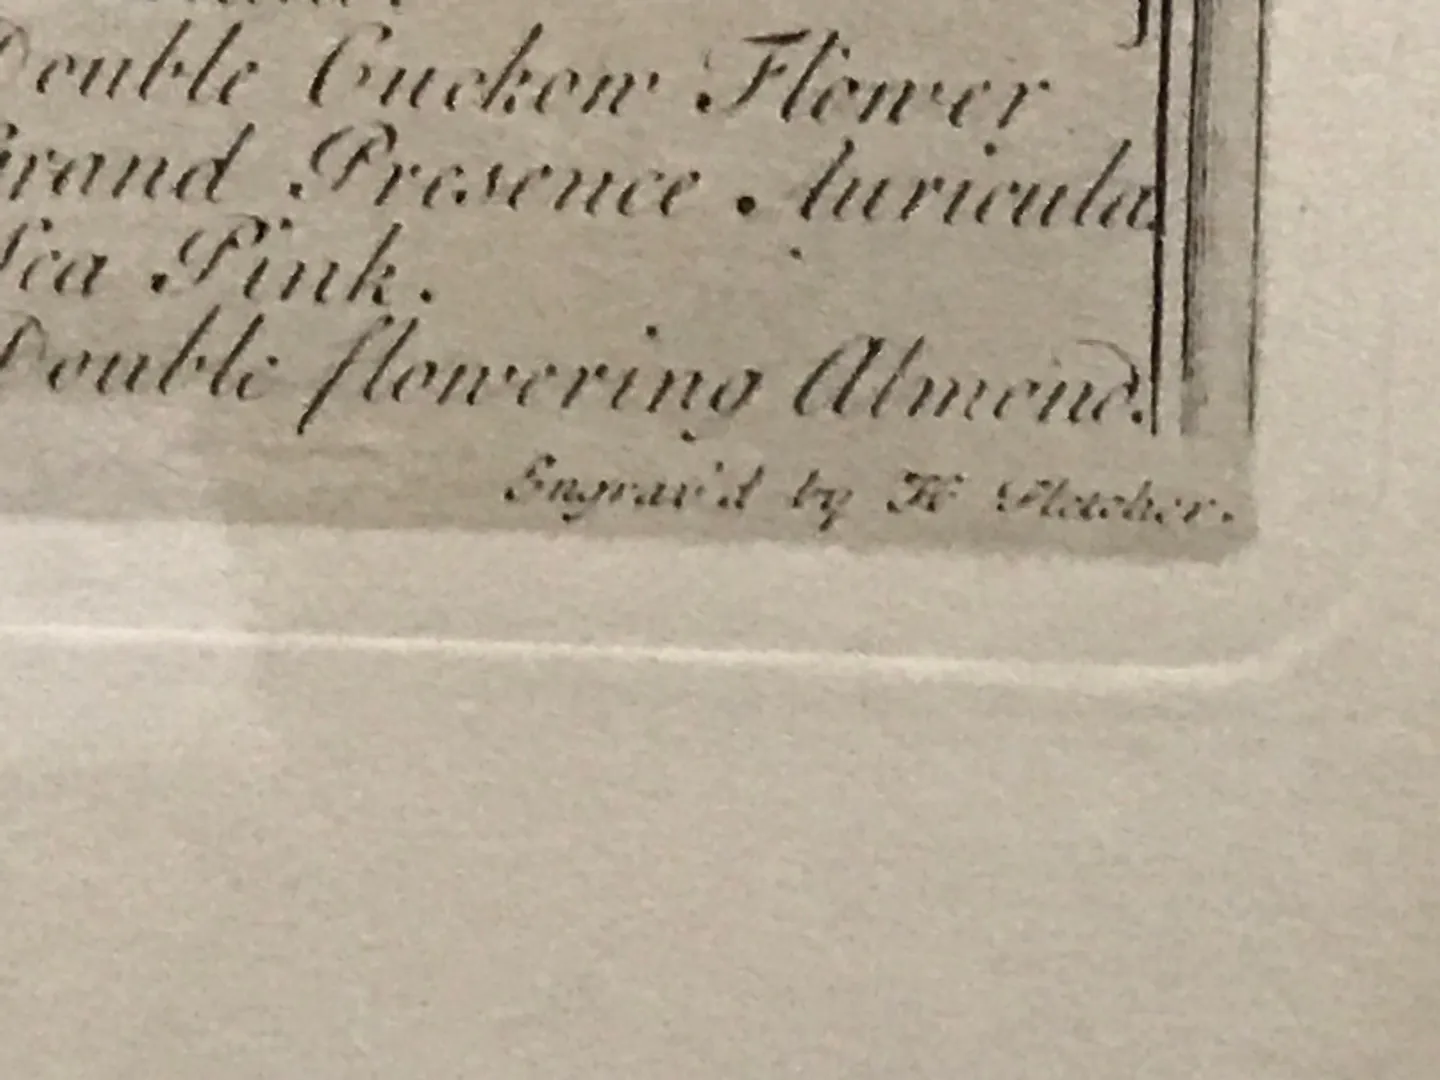 Double Cuckow Flower
Grand Presence Auricula.
Sea Pink.
Double flowering Almond.
Engrav'd by H Fletcher.